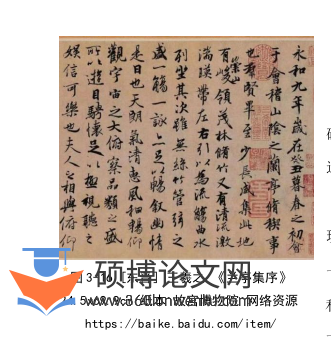 永和九年歲在癸丑暮春之初會
于會稽山陰之蘭亭脩稧事
也羣賢畢至少長咸集此地
有崇山峻領茂林脩竹又有清流激
湍暎帶左右引以為流觴曲水
列坐其次雖無絲竹管弦之
盛一觴一詠亦足以暢敘幽情
是日也天朗氣清惠風和暢仰
觀宇宙之大俯察品類之盛
所以遊目騁懷足以極視聽之
娛信可樂也夫人之相與俯仰
硕博论文网
集序》
纸本 故宫博物院 网络资源
https://baike.baidu.com/item/